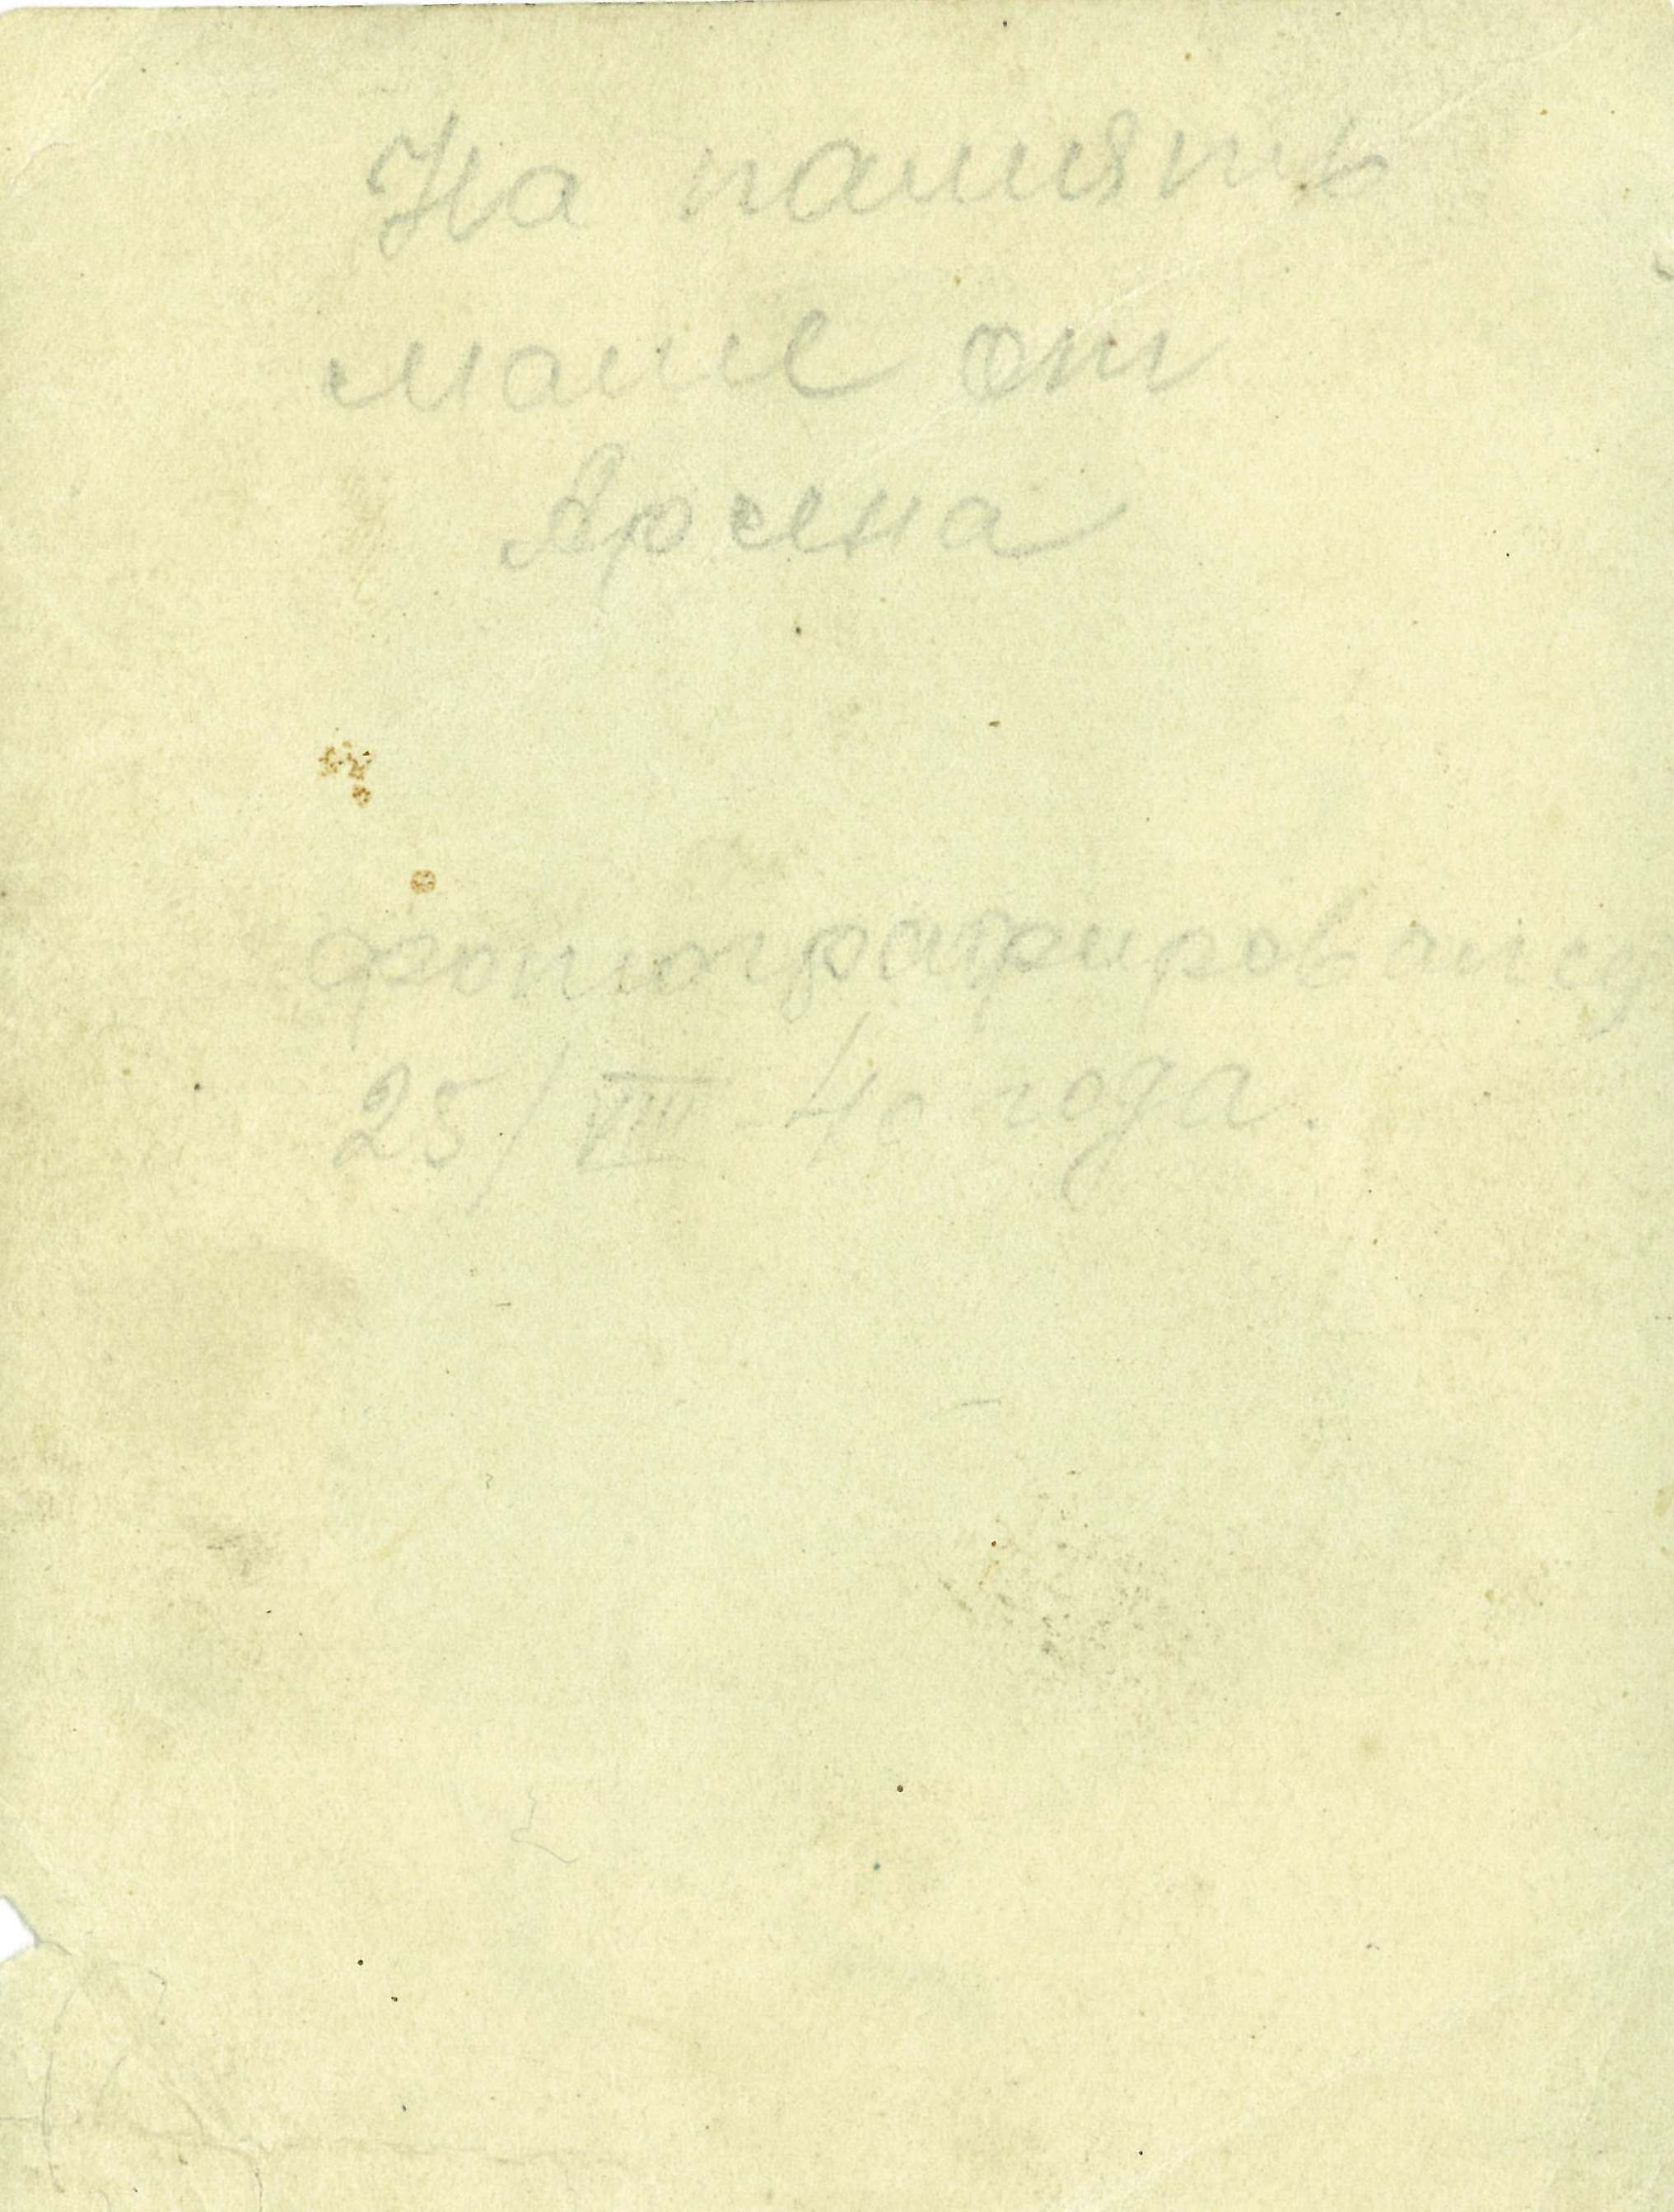 На память
маше от
Арсена
фотографировался
25/VIII-40 года.